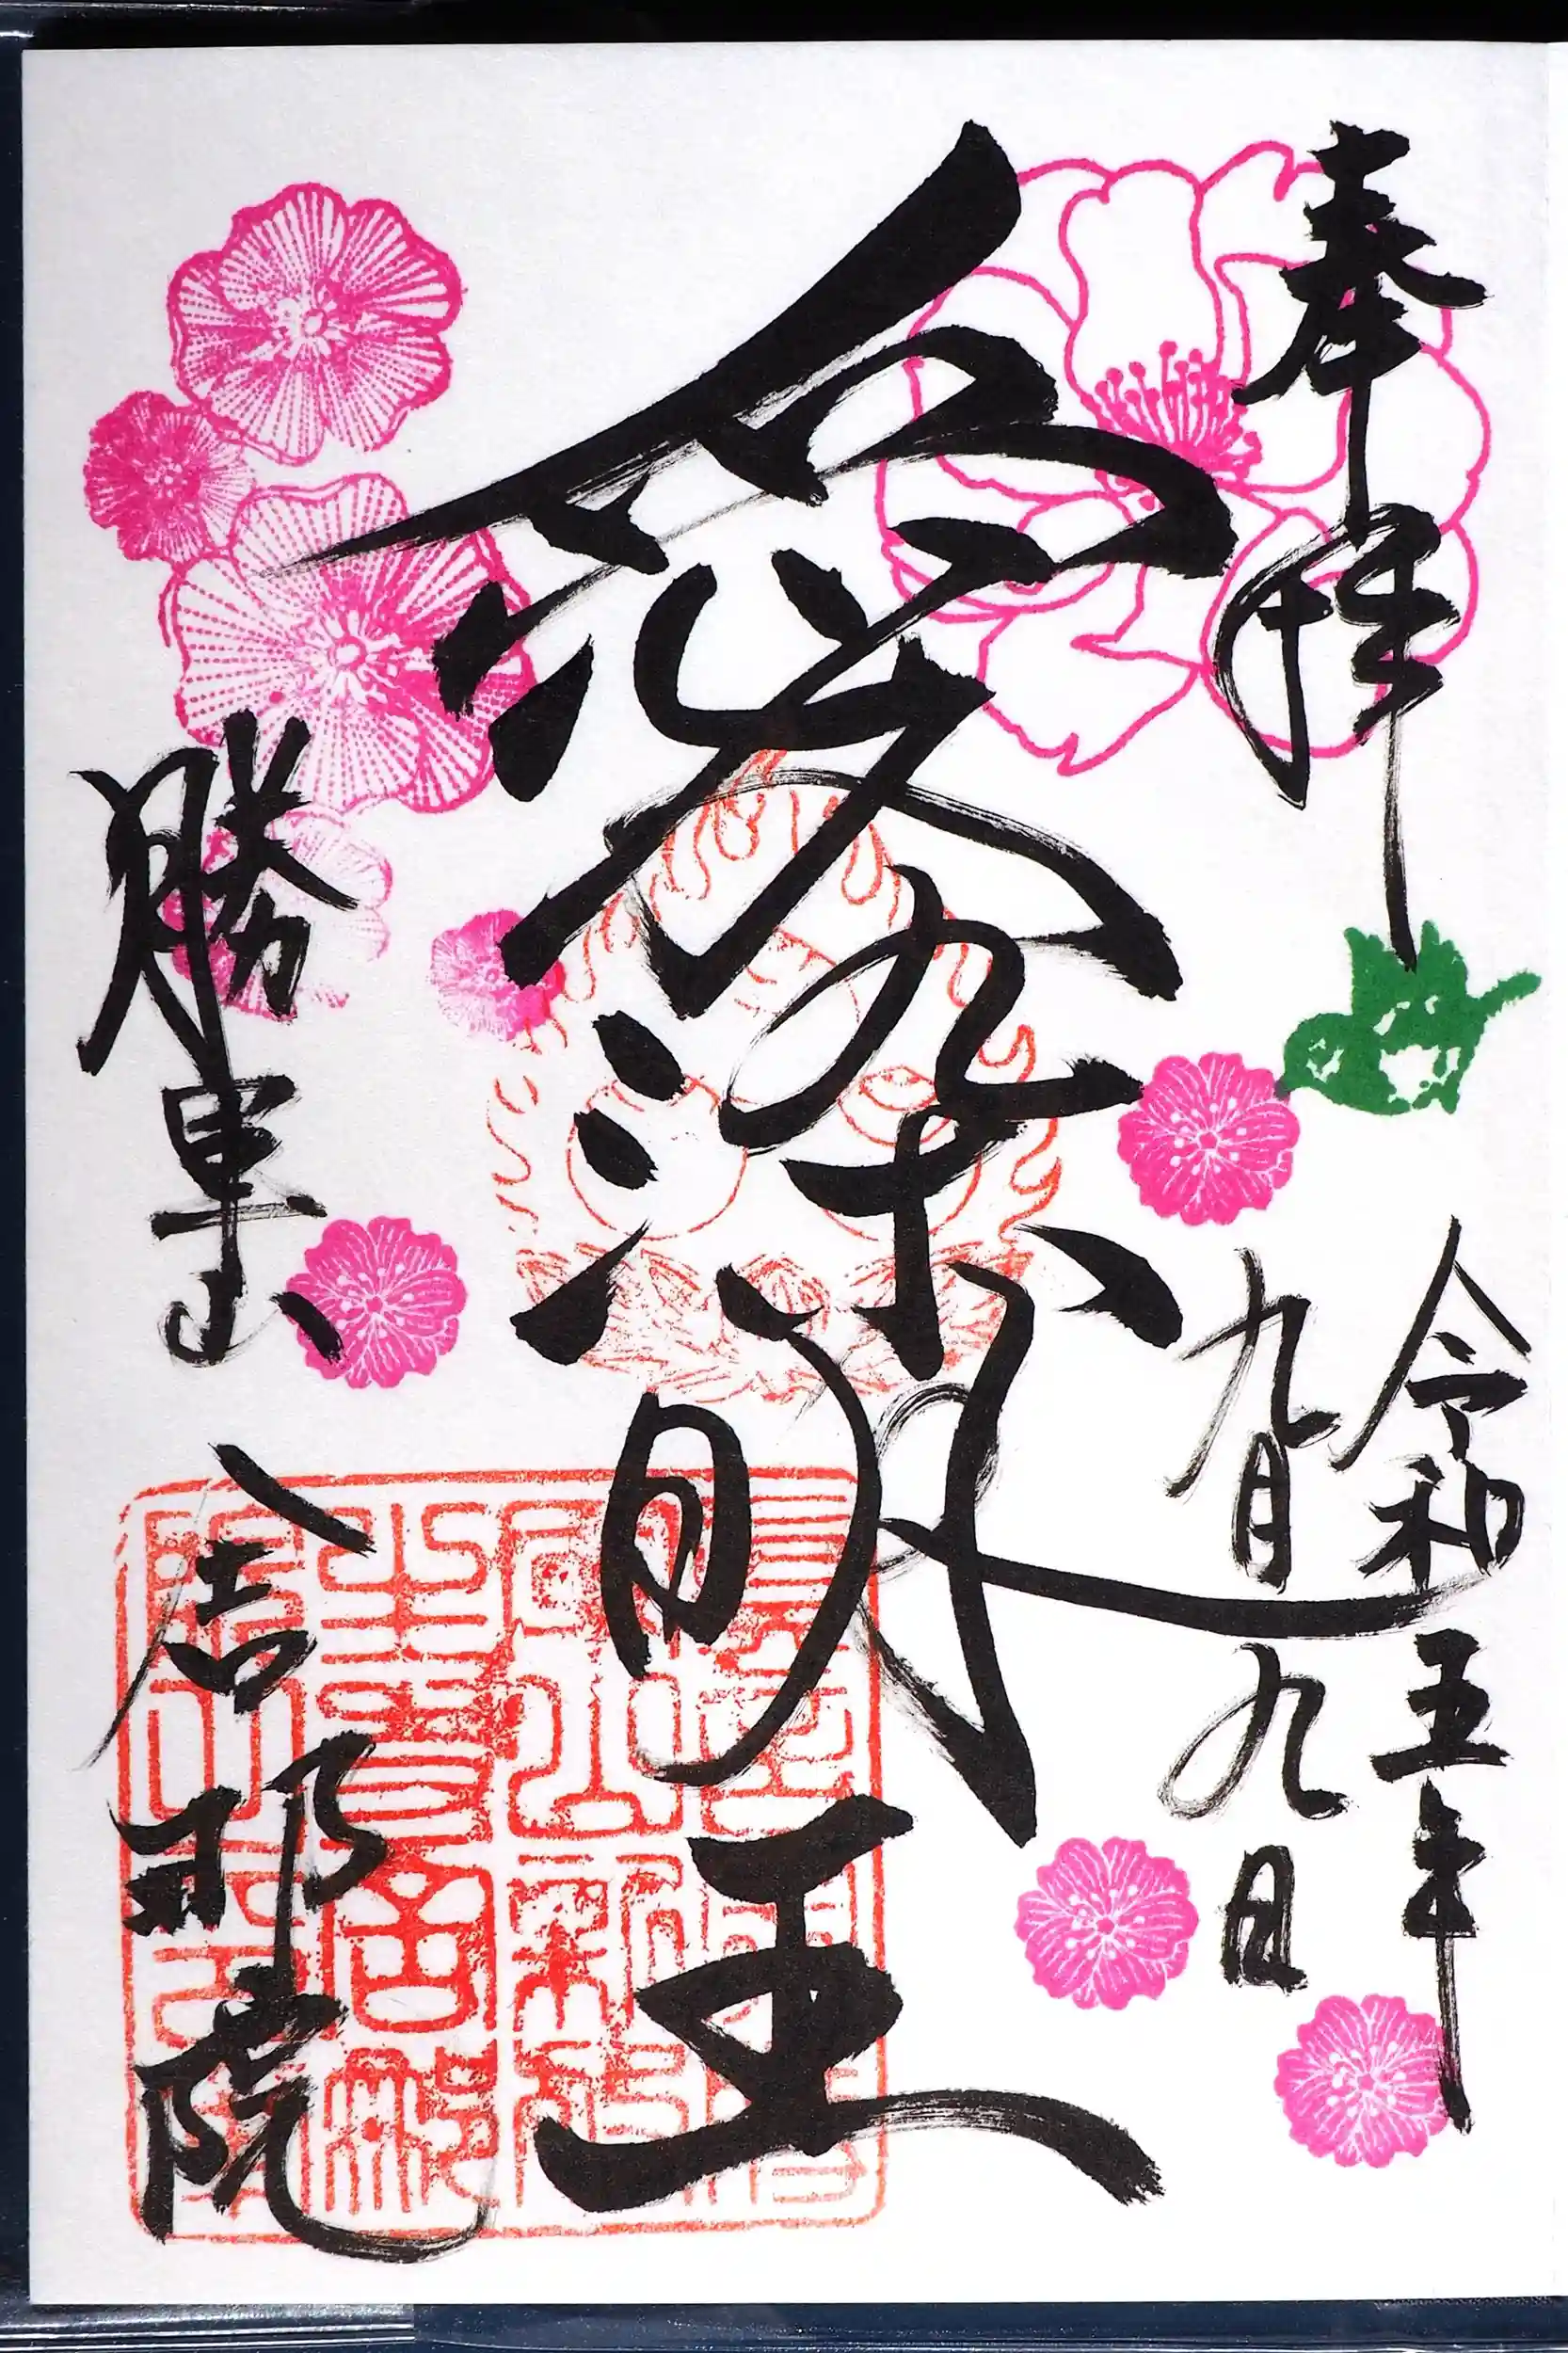 奉拝
令和五年
九月九日
愛染明王
勝軍山
舎那院